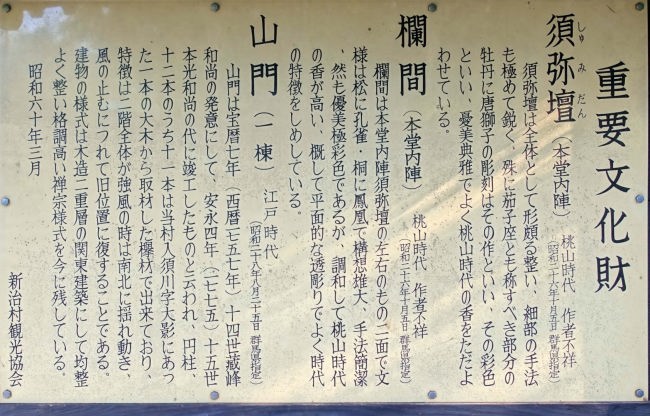 重要文化財
しゅみだん
須弥壇（本堂内陣）
桃山時代　作者不祥
（昭和二十六年十月五日　群馬県指定）
須弥壇は全体として形頗る整い、細部の手法
も極めて鋭く、殊に茄子座とも称すべき部分の
牡丹に唐獅子の彫刻はその作といい、その彩色
といい、優美典雅でよく桃山時代の香をただよ
わせている。
欄間（本堂内陣）
桃山時代　作者不祥
（昭和二十六年十月五日　群馬県指定）
欄間は本堂内陣須弥壇の左右のもの二面で文
様は松に孔雀・桐に鳳凰で構想雄大、手法簡潔
、然も優美極彩色であるが、調和して桃山時代
の香が高い、概して平面的な透彫りでよく時代
の特徴をしめしている。
山門（一棟）
江戸時代
（昭和二十八年八月二十五日　群馬県指定）
山門は宝暦七年（西暦一七五七年）十四世蔵峰
和尚の発意にして、安永四年（一七七五）十五世
本光和尚の代に竣工したものと云われ、円柱、
十二本のうち十一本は当村入須川字大影にあっ
た一本の大木から取材した欅材で出来ており、
特徴は二階全体が強風の時は南北に揺れ動き、
風の止むにつれて旧位置に復することである。
建物の様式は木造二重層の関東建築にして均整
よく整い格調高い禅宗様式を今に残している。
昭和六十年三月
新治村観光協会